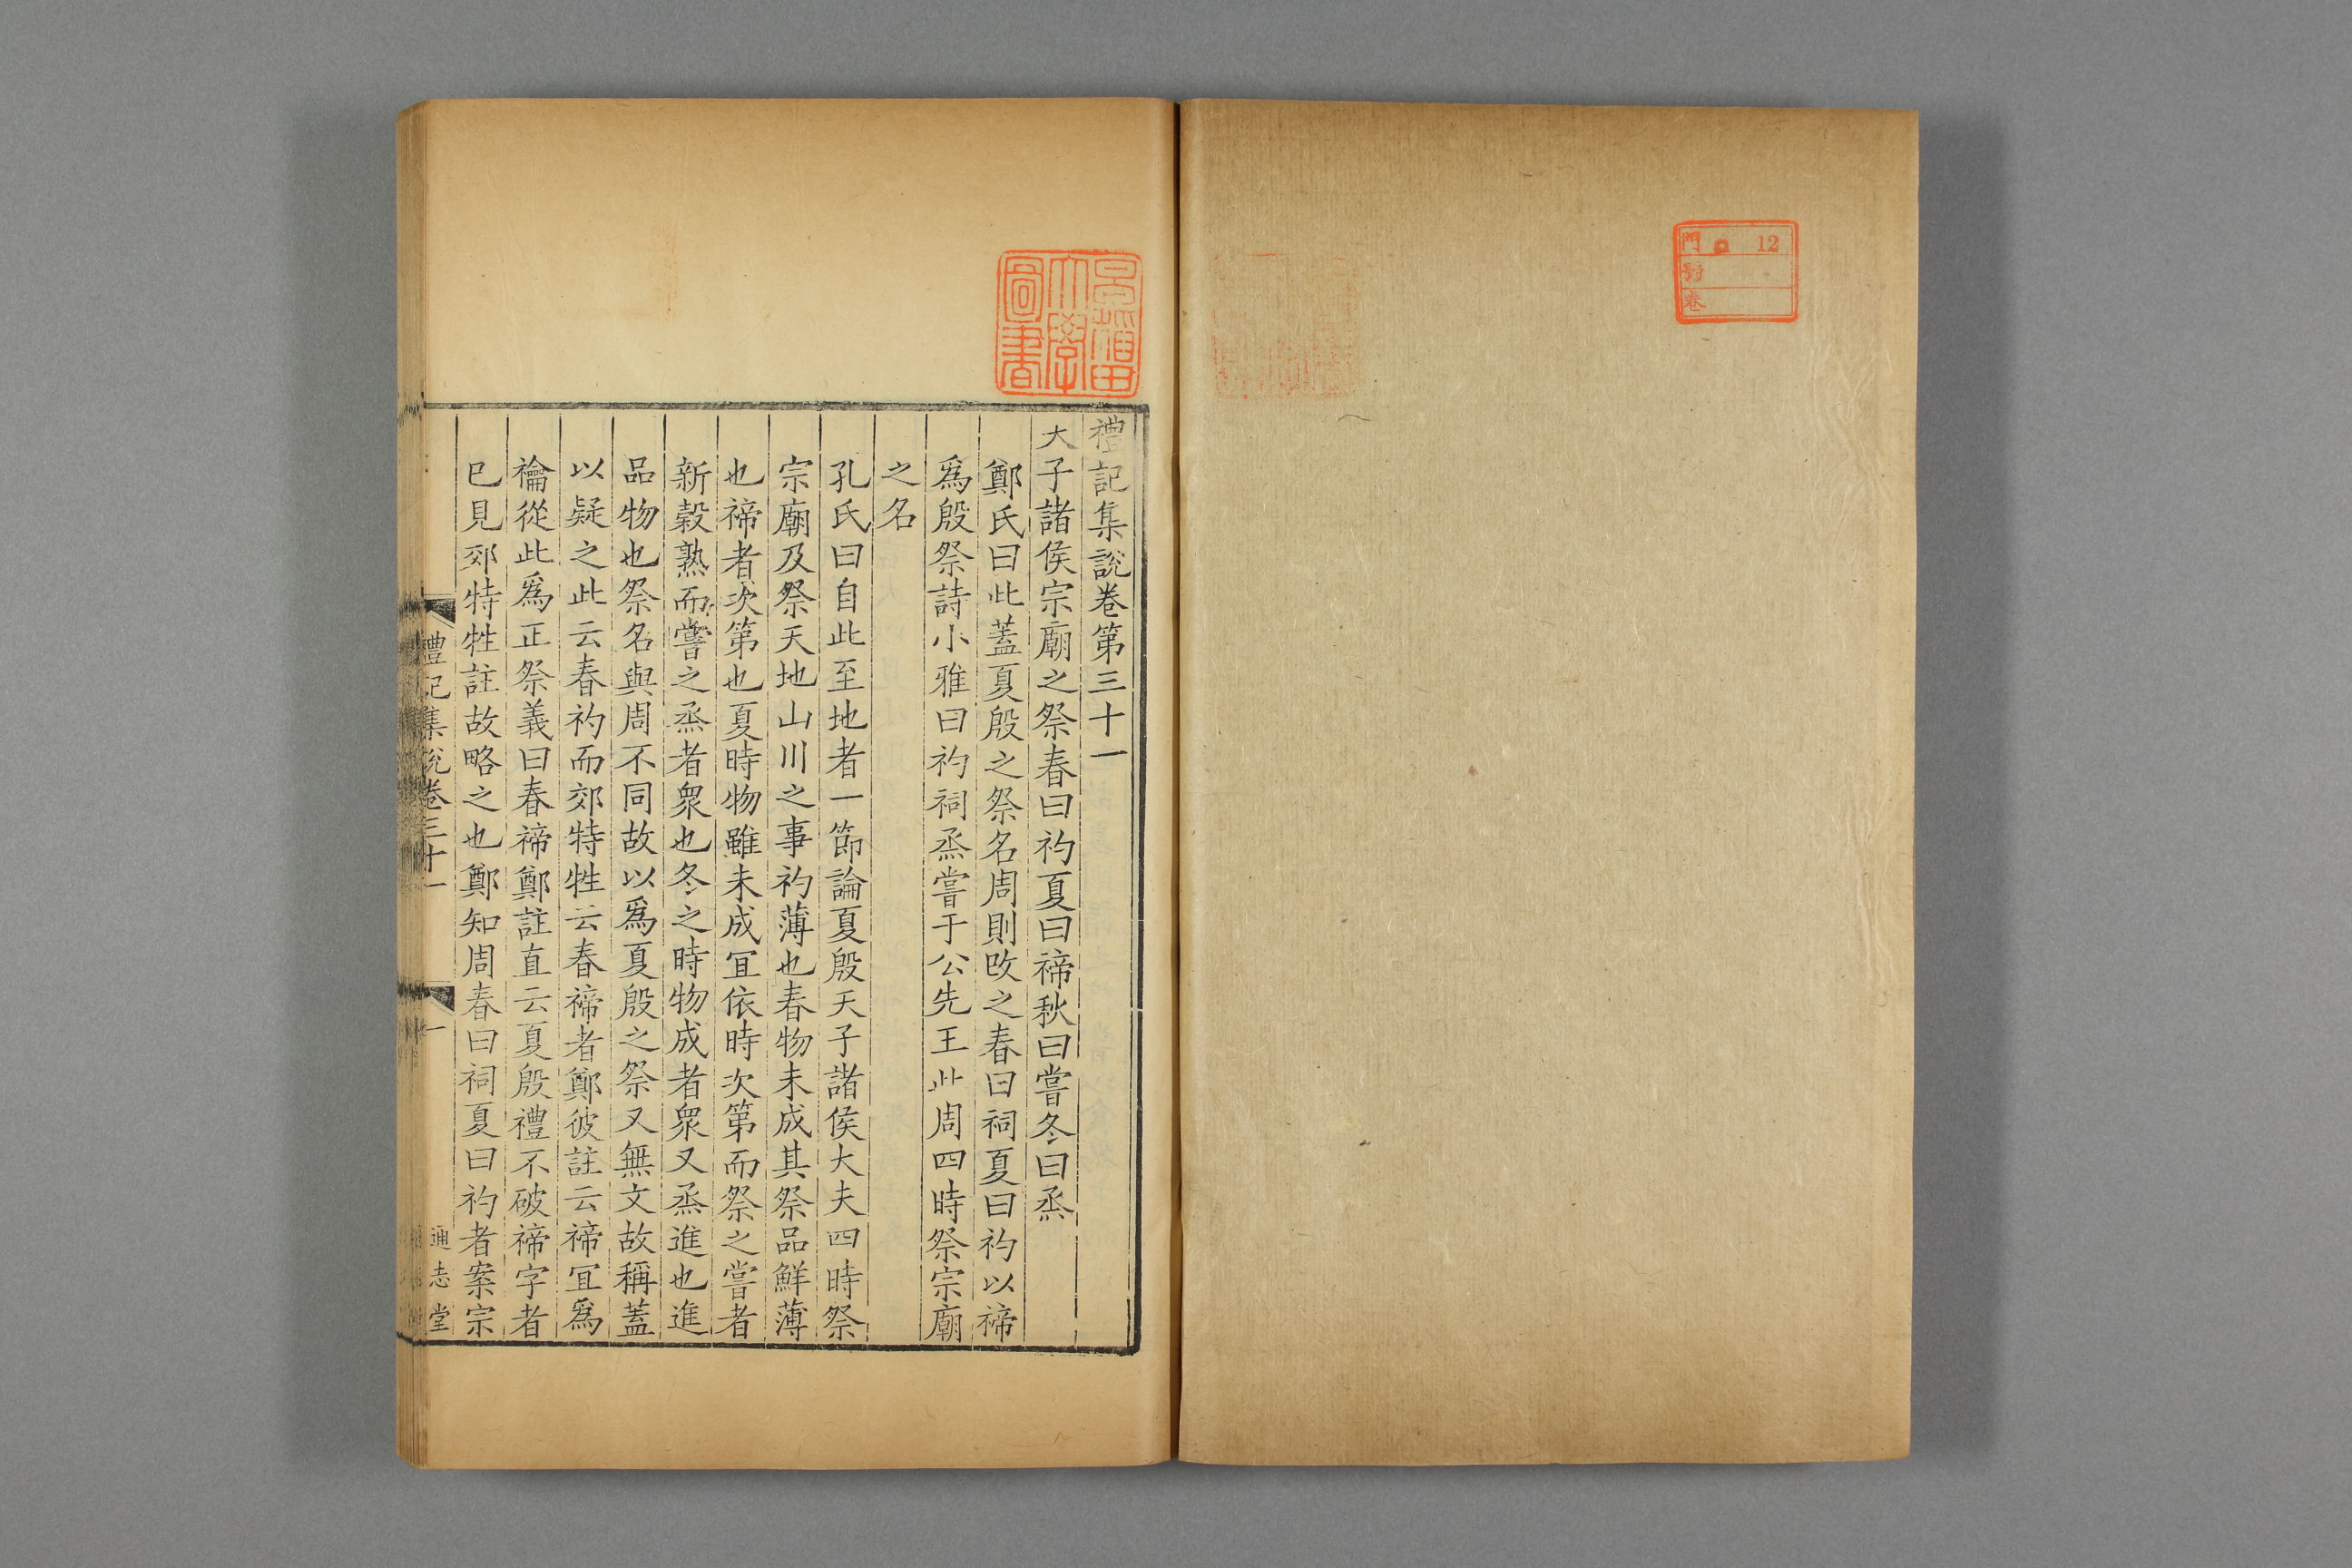 門 口 12
號
卷
早稲田
大學
圖書
禮記集說卷第三十一
大子諸侯宗廟之祭春曰礿夏曰禘秋曰嘗冬曰烝
鄭氏曰此蓋夏殷之祭名周則改之春曰祠夏曰礿以禘
爲殷祭詩小雅曰礿祠烝嘗于公先王此周四時祭宗廟
之名
孔氏曰自此至地者一節論夏殷天子諸侯大夫四時祭
宗廟及祭天地山川之事礿薄也春物未成其祭品鮮薄
也禘者次第也夏時物雖未成冝依時次第而祭之嘗者
新穀熟而嘗之烝者衆也冬之時物成者衆又烝進也進
品物也祭名與周不同故以爲夏殷之祭又無文故稱蓋
以疑之此云春礿而郊特牲云春禘者鄭彼註云禘冝爲
禴從此爲正祭義曰春禘鄭註直云夏殷禮不破禘字者
巳見郊特牲註故略之也鄭知周春曰祠夏曰礿者案宗
禮記集說卷三十一
一
通志堂